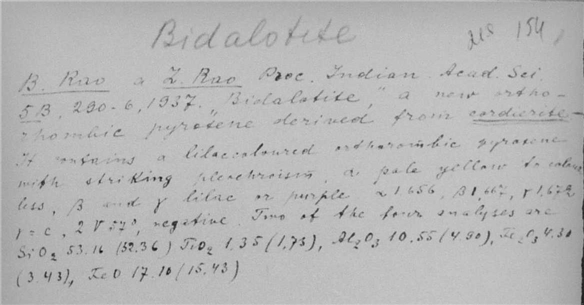 Bidalotite
154
B. Rao a L. Rao Proc. Indian. Acad. Sci.
5B, 290-6, 1937. "Bidalotite," a new ortho-
rhombic pyroxene derived from cordierite-
It contains a lilaccoloured orthorombic pyroxene
with striking pleochroism, α pale yellow to colour
less, β and γ lilac or purple α 1.656, β 1.667, γ 1.672
γ=c, 2V 57°, negative. Two of the four analyses are
SiO2 53.16 (52.36) TiO2 1.35 (1.73), Al2O3 10.55 (4.90), Fe2O3 4.30
(3.43), FeO 17.10 (15.43)